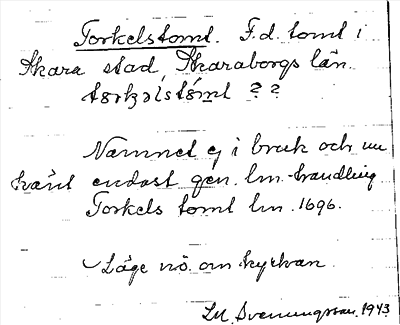 Torkelstomt. F.d. tomt i
Skara stad, Skaraborgs län.
tørkəlstómt ??
Namnet ej i bruk och nu
känt endast gen. lm.-handling
Torkels tomt lm. 1696.
Läge nö. om kyrkan.
LM Svenungsson. 1943